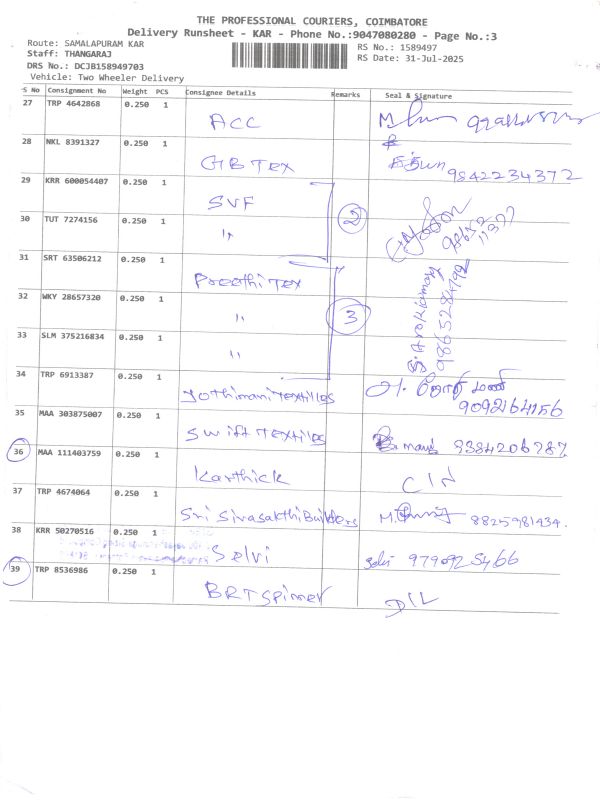 THE PROFESSIONAL COURIERS, COIMBATORE
Delivery Runsheet - KAR - Phone No.:9047080280 - Page No.:3
Route: SAMALAPURAM KAR RS No.: 1589497
Staff: THANGARAJ RS Date: 31-Jul-2025
DRS No.: DCJB158949703
Vehicle: Two Wheeler Delivery
S No Consignment No Weight PCS Consignee Details Remarks Seal & Signature
27 TRP 4642868 0.250 1 ACC
28 NKL 8391327 0.250 1 GB Tex 9842234372
29 KRR 600054407 0.250 1 SVF
30 TUT 7274156 0.250 1 " 2 98652 11377
31 SRT 63506212 0.250 1 Preethi Tex
32 WKY 28657320 0.250 1 " 3
33 SLM 375216834 0.250 1 "
34 TRP 6913387 0.250 1 Jothimani Textiles 9092164156
35 MAA 303875007 0.250 1 Swift Textiles 9384206787
36 MAA 111403759 0.250 1 Karthick CIN
37 TRP 4674064 0.250 1 Sri Sivasakthi Builders 8825981434.
38 KRR 50270516 0.250 1 Selvi Selvi 9790925466
39 TRP 8536986 0.250 1 BRT Spinner DIL